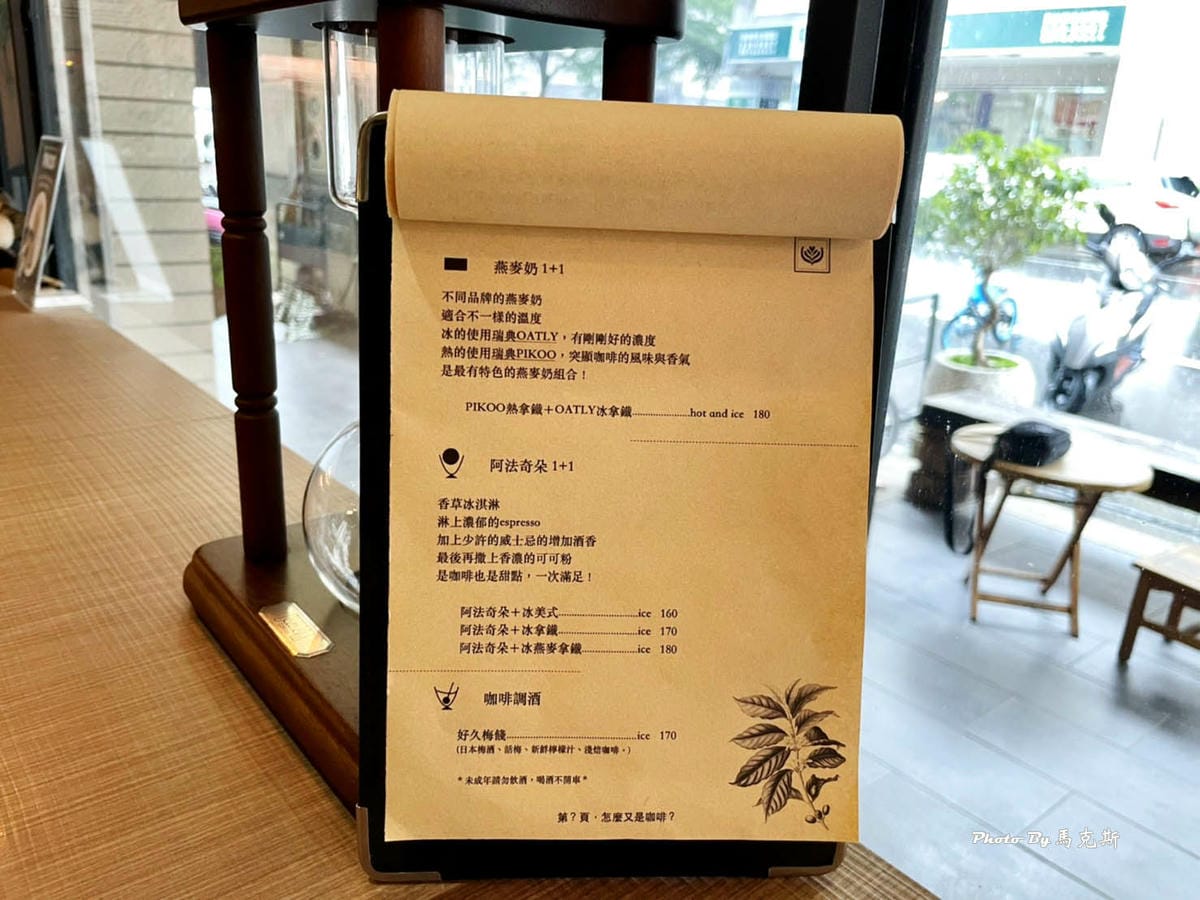 燕麥奶 1+1
不同品牌的燕麥奶
適合不一樣的溫度
冰的使用瑞典OATLY，有剛剛好的濃度
熱的使用瑞典PIKOO，突顯咖啡的風味與香氣
是最有特色的燕麥奶組合！
PIKOO熱拿鐵＋OATLY冰拿鐵......................hot and ice 180
阿法奇朵 1+1
香草冰淇淋
淋上濃郁的espresso
加上少許的威士忌的增加酒香
最後再撒上香濃的可可粉
是咖啡也是甜點，一次滿足！
阿法奇朵＋冰美式..............................ice 160
阿法奇朵＋冰拿鐵..............................ice 170
阿法奇朵＋冰燕麥拿鐵.........................ice 180
咖啡調酒
好久梅餞.................................................ice 170
(日本梅酒、話梅、新鮮檸檬汁、淺焙咖啡。)
*未成年請勿飲酒，喝酒不開車*
第？頁．怎麼又是咖啡？
Photo By 馬克斯